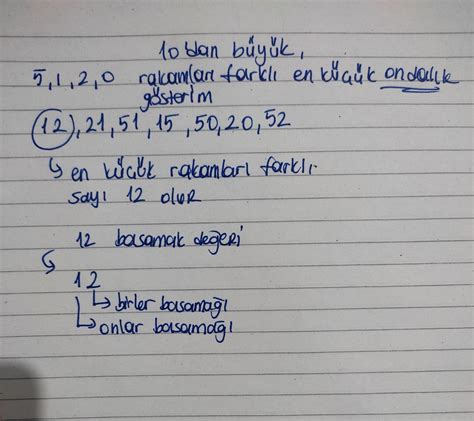 10'dan büyük,
5,1,2,0 rakamları farklı en küçük ondalık
gösterim
12, 21, 51, 15, 50, 20, 52
↳ en küçük rakamları farklı
sayı 12 olur
12 basamak değeri
↳
12
↳ birler basamağı
↳ onlar basamağı